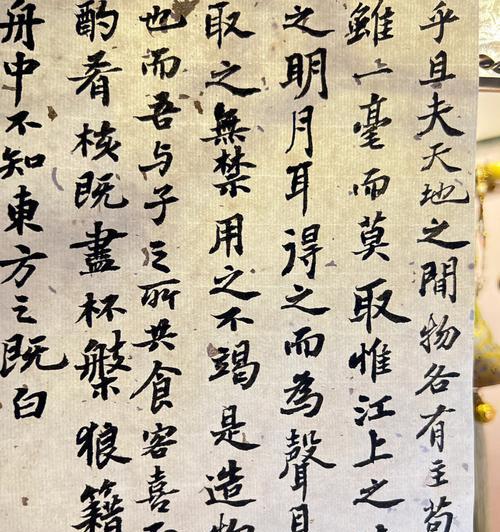 乎且夫天地之間物各有主苟
雖一毫而莫取惟江上之
之明月耳得之而為聲目
取之無禁用之不竭是造物
也而吾与子之所共食客喜而
酌肴核既盡杯槃狼籍
舟中不知東方之既白